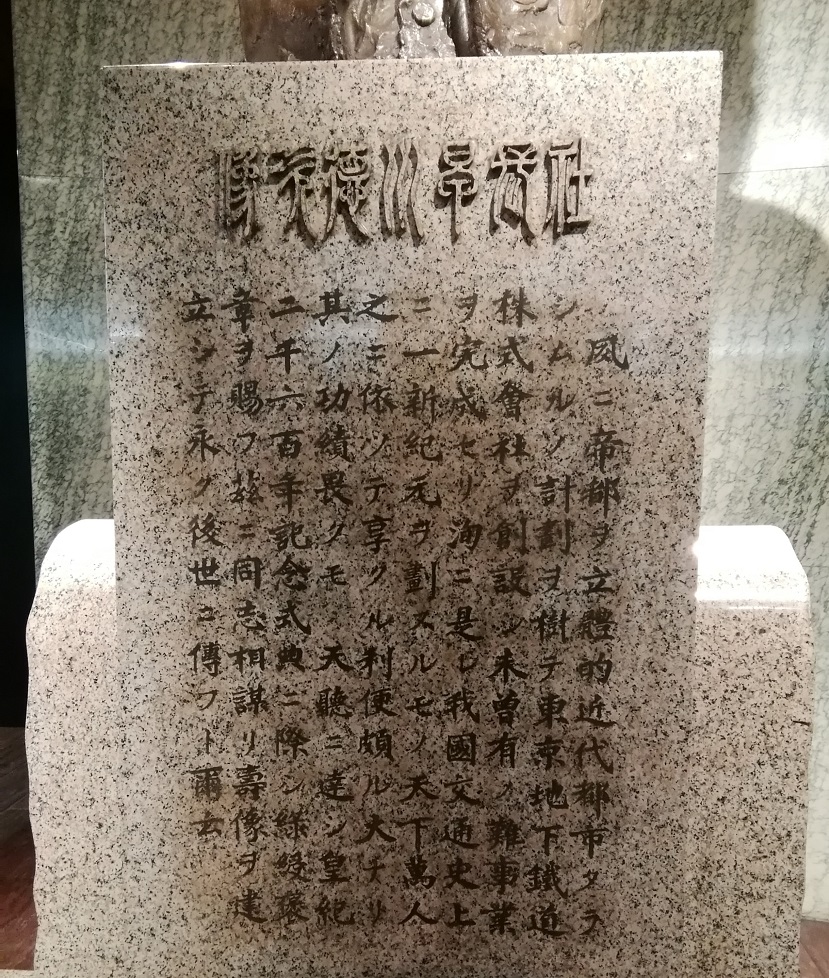 社長早川德次像
夙ニ帝都ヲ立體的近代都市タラ
シムルノ計劃ヲ樹テ東京地下鐵道
株式會社ヲ創設シ未曾有ノ難事業
ヲ完成セリ洵ニ是レ我國交通史上
ニ一新紀元ヲ劃スルモノ天下萬人
之ニ依ツテ享クル利便頗ル大ナリ
其ノ功績畏クモ　天聽ニ達シ皇紀
二千六百年記念式典ニ際シ綠綬褒
章ヲ賜フ茲ニ同志相謀リ壽像ヲ建
立シテ永ク後世ニ傳フト爾云